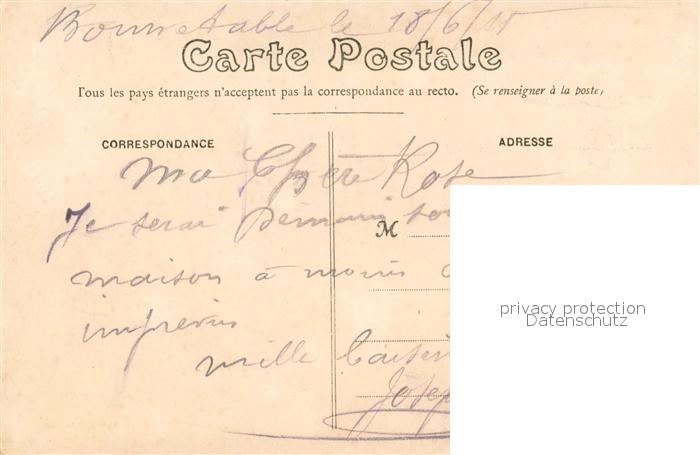 Bonnetable le 18/6/11
Carte Postale
Tous les pays étrangers n'acceptent pas la correspondance au recto. (Se renseigner à la poste)
CORRESPONDANCE
ADRESSE
ma Chere Rose
Je serai Demain
M
maison à moins
imprevus
mille
privacy protection
Datenschutz